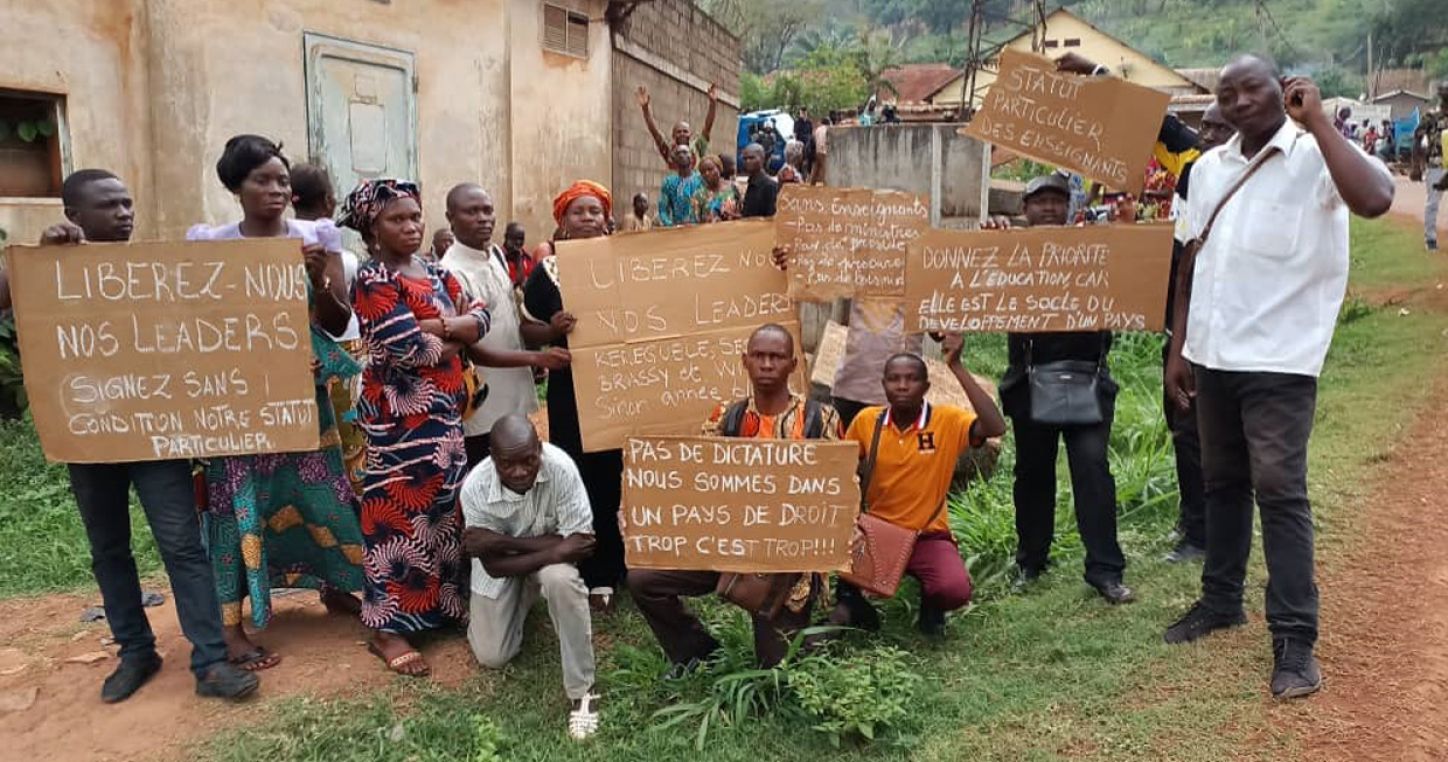 LIBEREZ-NOUS
NOS LEADERS
(SIGNEZ SANS !
CONDITION NOTRE STATUT
PARTICULIER.
LIBEREZ NOUS
NOS LEADERS
KEREGUELE,
BRASSY et
Sinon année
Sans Enseignants
- Pas de ministres
- Pas de
- Pas de
- Pas de
STATUT
PARTICULIER
DES ENSEIGNANTS
DONNEZ LA PRIORITE
A L'EDUCATION, CAR
ELLE EST LE SOCLE DU
DEVELOPPEMENT D'UN PAYS
PAS DE DICTATURE
NOUS SOMMES DANS
UN PAYS DE DROIT
TROP C'EST TROP!!!
H